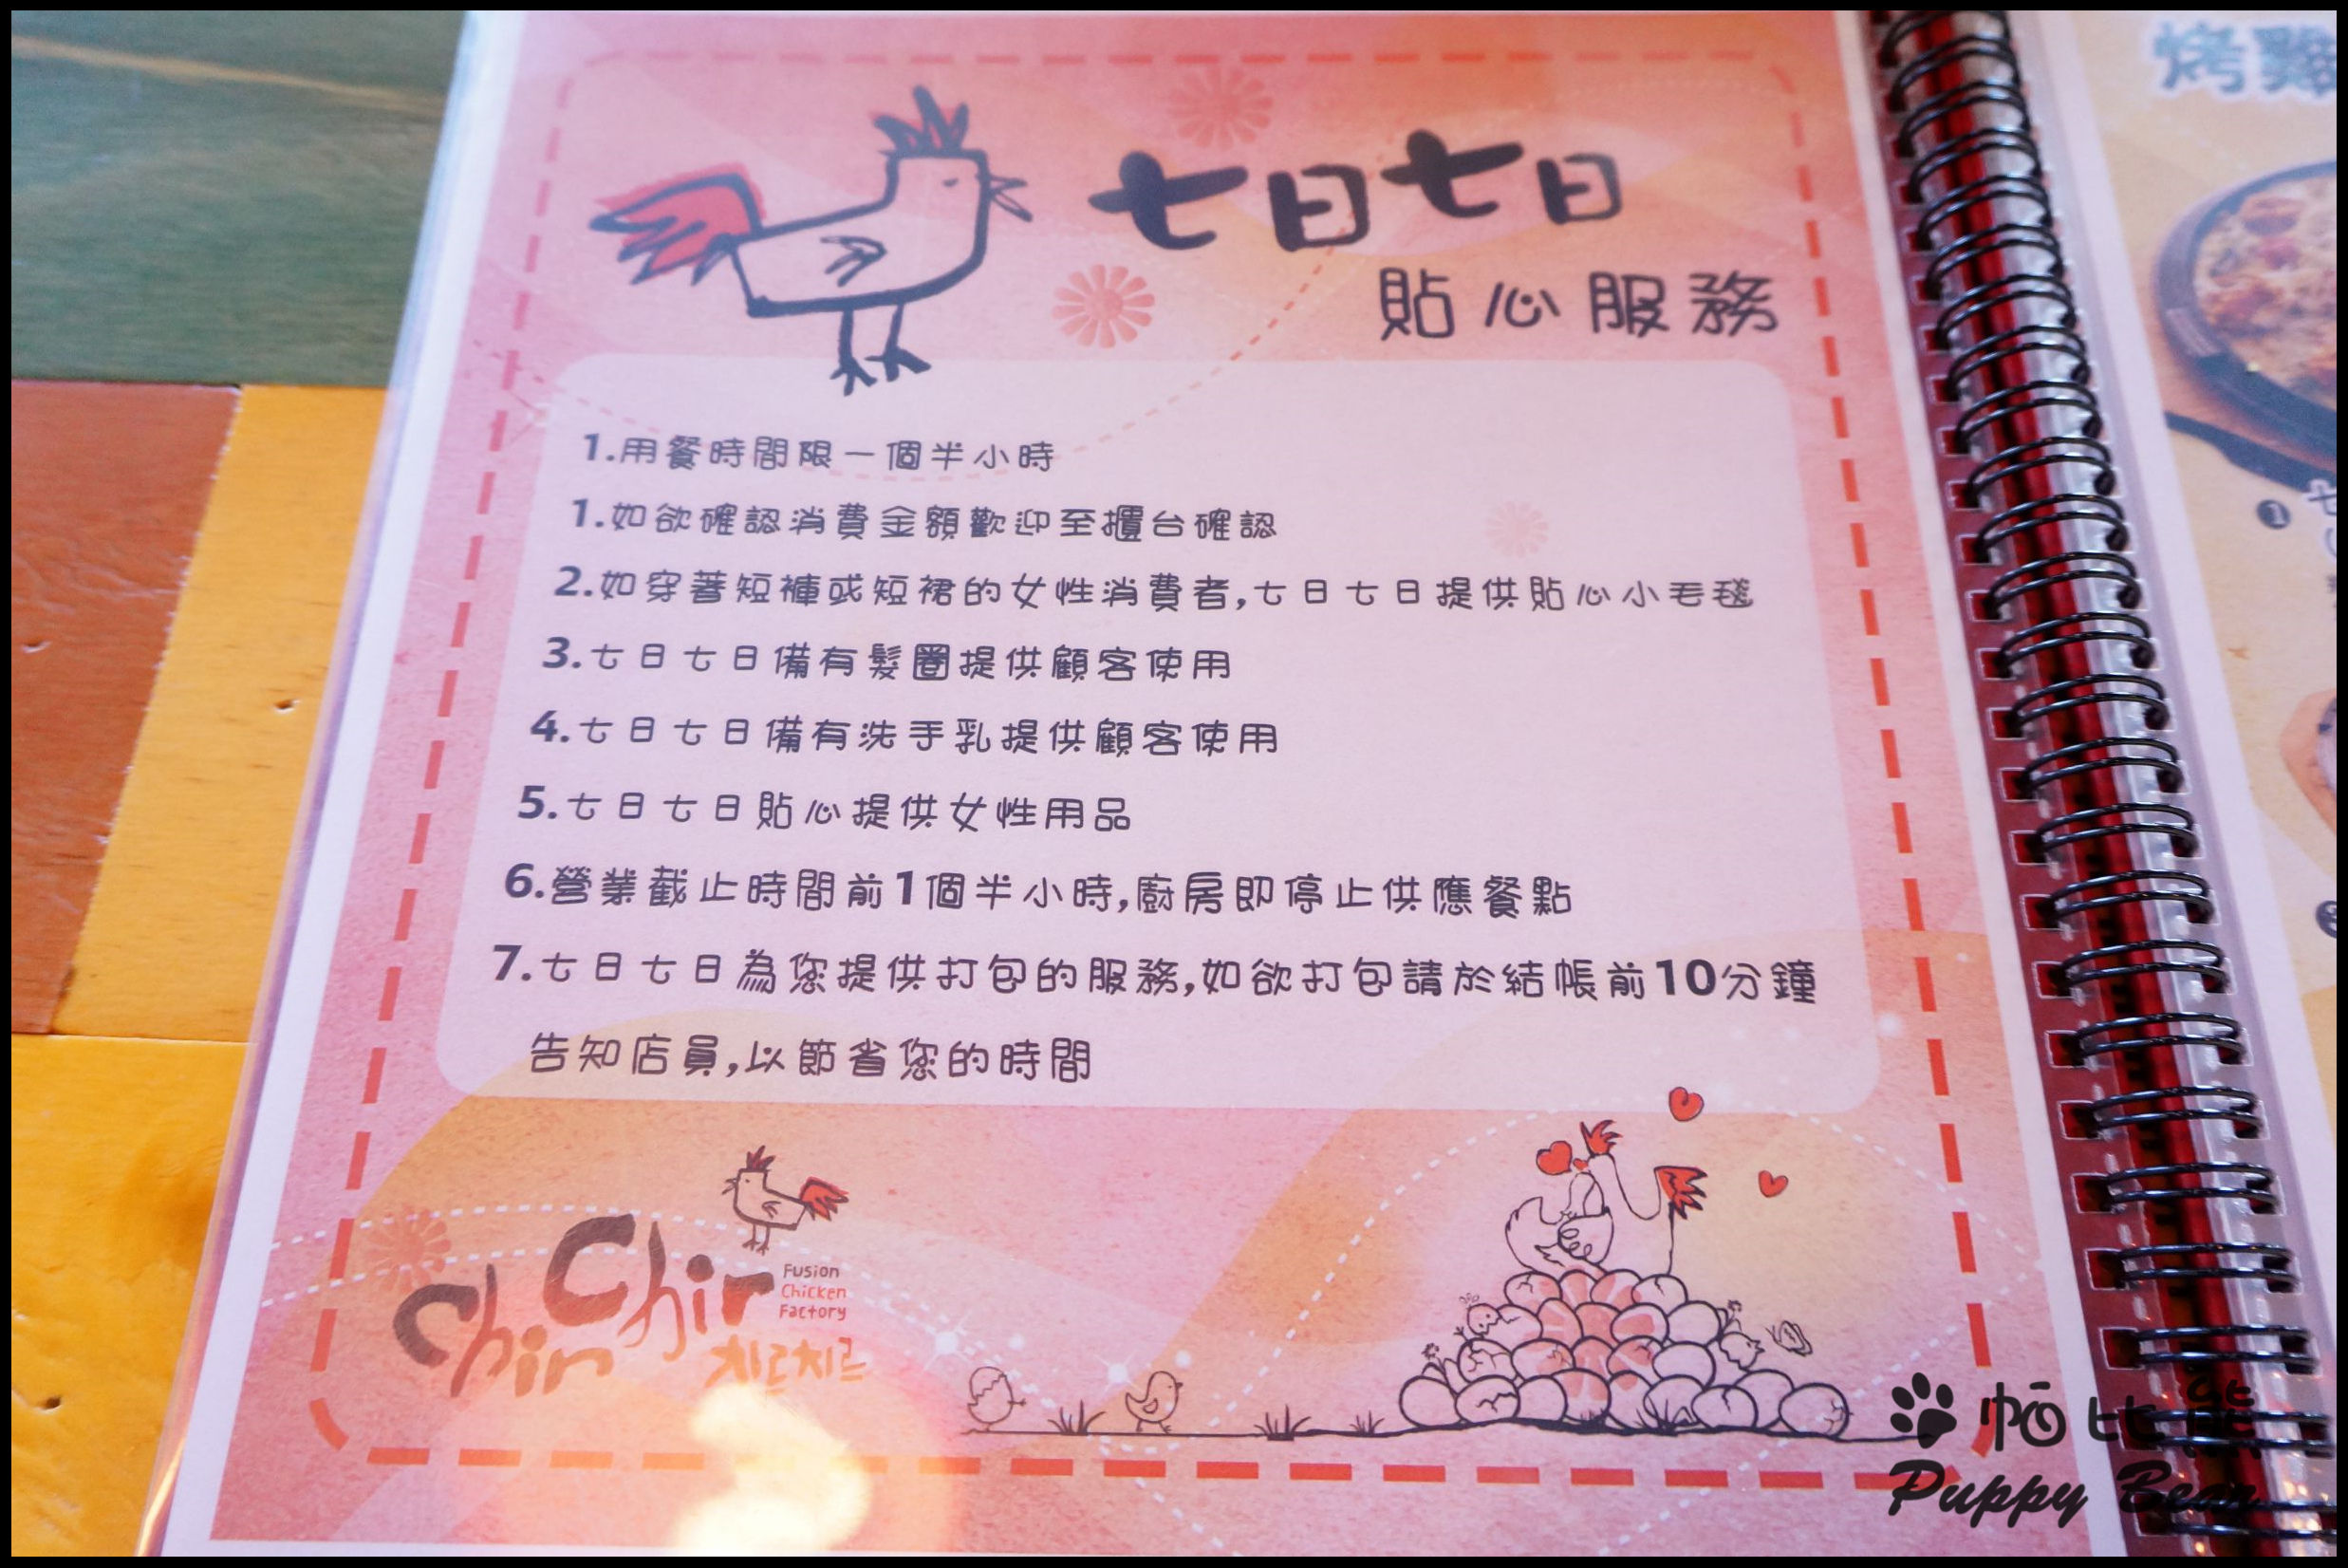 七日七日
貼心服務
1.用餐時間限一個半小時
1.如欲確認消費金額歡迎至櫃台確認
2.如穿著短褲或短裙的女性消費者,七日七日提供貼心小毛毯
3.七日七日備有髮圈提供顧客使用
4.七日七日備有洗手乳提供顧客使用
5.七日七日貼心提供女性用品
6.營業截止時間前1個半小時,廚房即停止供應餐點
7.七日七日為您提供打包的服務,如欲打包請於結帳前10分鐘
告知店員,以節省您的時間
Chir Chir
Fusion
Chicken
Factory
치르치르
烤雞
1 七
帕比熊
Puppy Bear